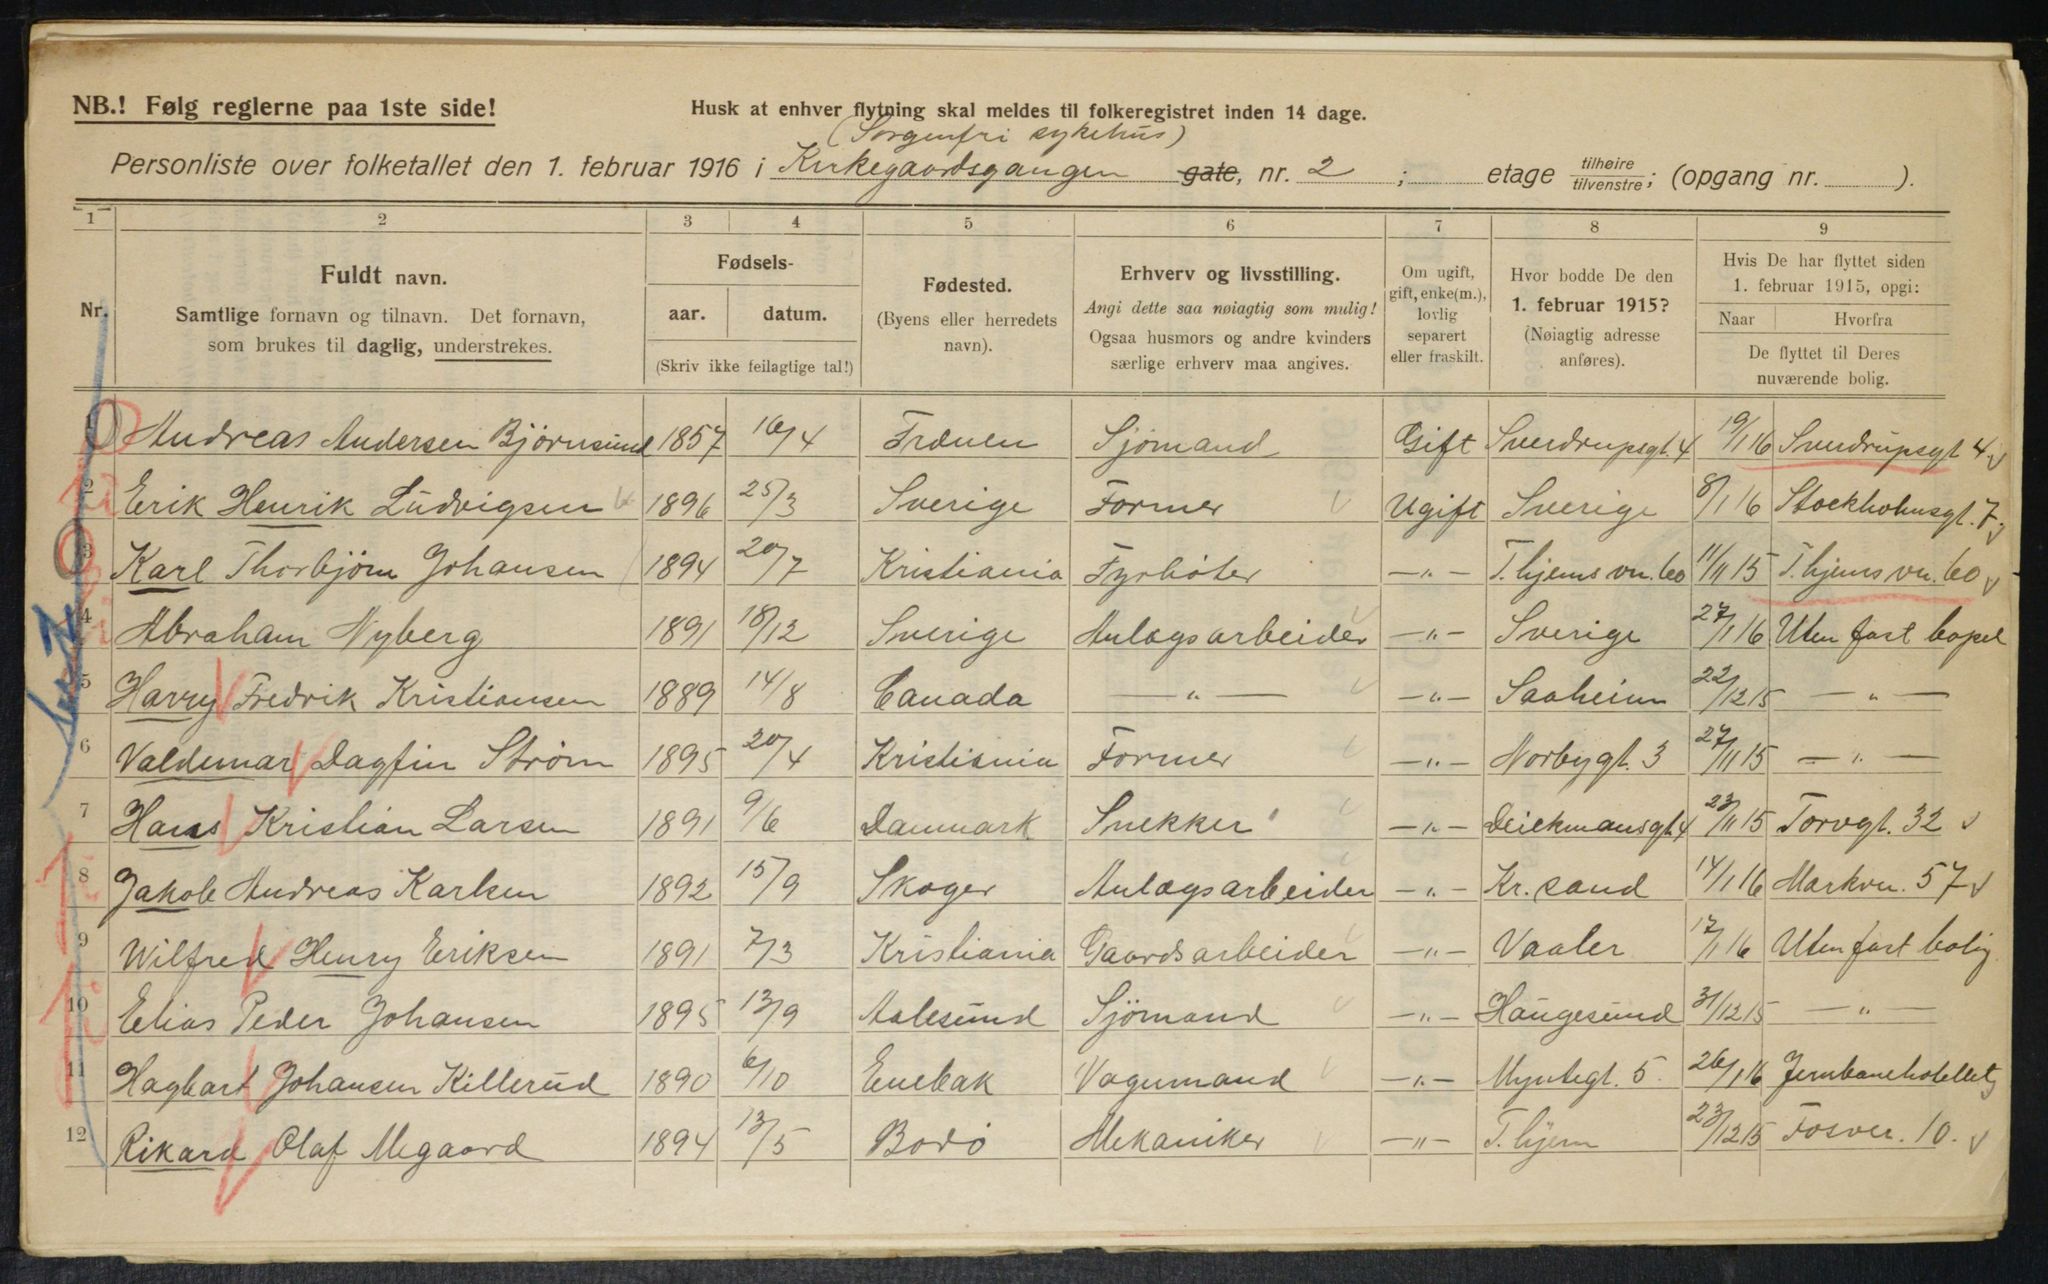 NB.! Følg reglerne paa 1ste side!
Husk at enhver flytning skal meldes til folkeregistret inden 14 dage.
(Sorgenfri sykehus)
Personliste over folketallet den 1. februar 1916 i Kirkegaardsgangen gate, nr. 2 ; etage tilhøire/tilvenstre; (opgang nr. ).
1 2 3 4 5 6 7 8 9
Nr. Fuldt navn. Samtlige fornavn og tilnavn. Det fornavn, som brukes til daglig, understrekes.
Fødsels- aar. datum. (Skriv ikke feilagtige tal!)
Fødested. (Byens eller herredets navn).
Erhverv og livsstilling. Angi dette saa nøiagtig som mulig! Ogsaa husmors og andre kvinders særlige erhverv maa angives.
Om ugift, gift, enke(m.), lovlig separert eller fraskilt.
Hvor bodde De den 1. februar 1915? (Nøiagtig adresse anføres).
Hvis De har flyttet siden 1. februar 1915, opgi: Naar Hvorfra De flyttet til Deres nuværende bolig.
1 Andreas Andersen Bjørnsund 1857 16/4 Frænen Sjömand Gift Sverdrupsgt. 4 19/1 16 Sverdrupsgt 4
2 Erik Henrik Ludvigsen 1896 25/3 Sverige Former Ugift Sverige 8/1 16 Stockholmsgt. 7
3 Karl Thorbjörn Johansen 1894 20/7 Kristiania Fyrböter —„— T.hjems vn. 60 11/11 15 T.hjems vn. 60
4 Abraham Nyberg 1891 18/12 Sverige Anlægsarbeider —„— Sverige 27/1 16 Uten fast bopel
5 Harry Fredrik Kristiansen 1889 14/8 Canada —„— —„— Saaheim 22/12 15 —„—
6 Valdemar Dagfin Strøm 1895 20/4 Kristiania Former —„— Norbygt. 3 27/11 15 —„—
7 Hans Kristian Larsen 1891 9/6 Danmark Snekker —„— Deickmansgt 4 23/11 15 Torvgt. 32
8 Jakob Andreas Karlsen 1892 15/9 Skoger Anlægsarbeider —„— Kr. sand 14/1 16 Markvn. 57
9 Wilfred Henry Eriksen 1891 7/3 Kristiania Gaardsarbeider —„— Vaaler 17/1 16 Uten fast bolig
10 Elias Peder Johansen 1895 13/9 Aalesund Sjömand —„— Haugesund 31/12 15 —„—
11 Hagbart Johansen Killerud 1890 6/10 Enebak Vognmand —„— Myntegt. 5 26/1 16 Jernbanehotellet
12 Rikard Olaf Megaard 1894 13/5 Bodö Mekaniker —„— T.hjem 23/12 15 Fosver. 10.